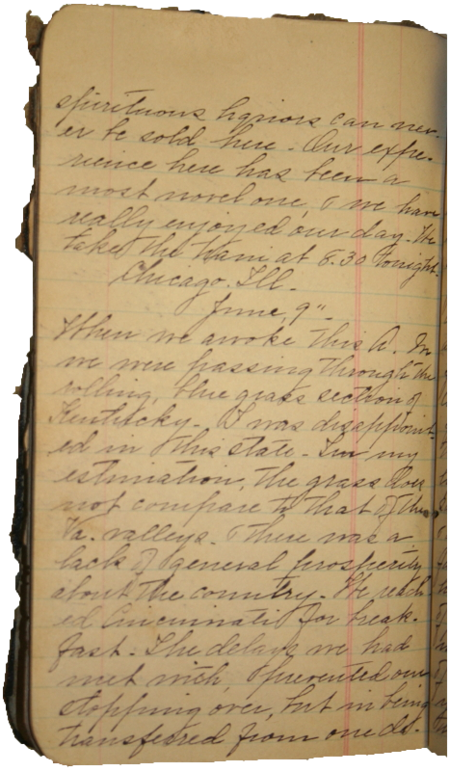 spirituous liquors can nev-
er be sold here. Our expe-
rience here has been a
most novel one, & we have
really enjoyed our day. We
take the train at 8.30 tonight.
Chicago. Ill.
June, 9"
When we awoke this A. M
we were passing through the
rolling, blue grass section of
Kentucky. I was disappoint-
ed in this state. In my
estimation, the grass does
not compare to that of the
Va. valleys. There was a
lack of general prosperity
about the country. We reach-
ed Cincinnati for break-
fast. The delays we had
met with, prevented our
stopping over, but in being
transferred from one de-